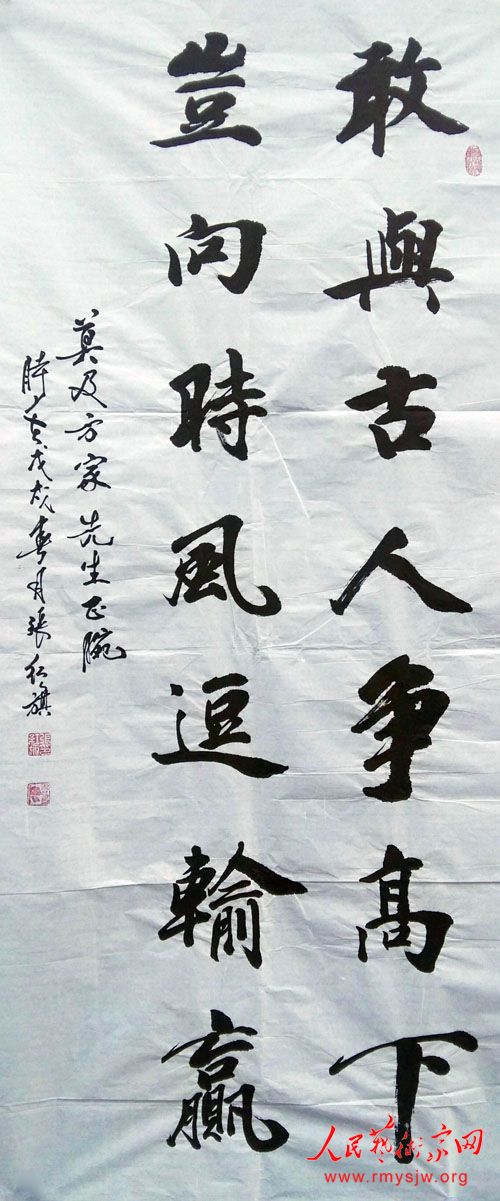 敢與古人争高下
豈向時風逗輸贏
莫及方家先生正腕
時于戊戌春月張紅旗
人民藝術家网
www.rmysjw.org